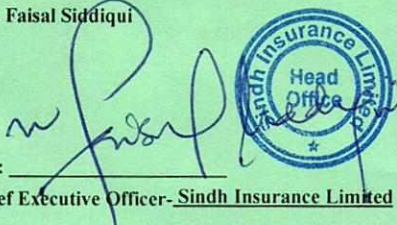 Faisal Siddiqui
Sindh Insurance Limited
Head
Office
:
ef Executive Officer- Sindh Insurance Limited